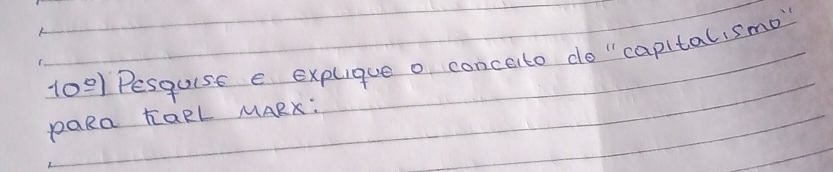 10º) Pesquise e explique o conceito do "capitalismo"
para Karl Marx: